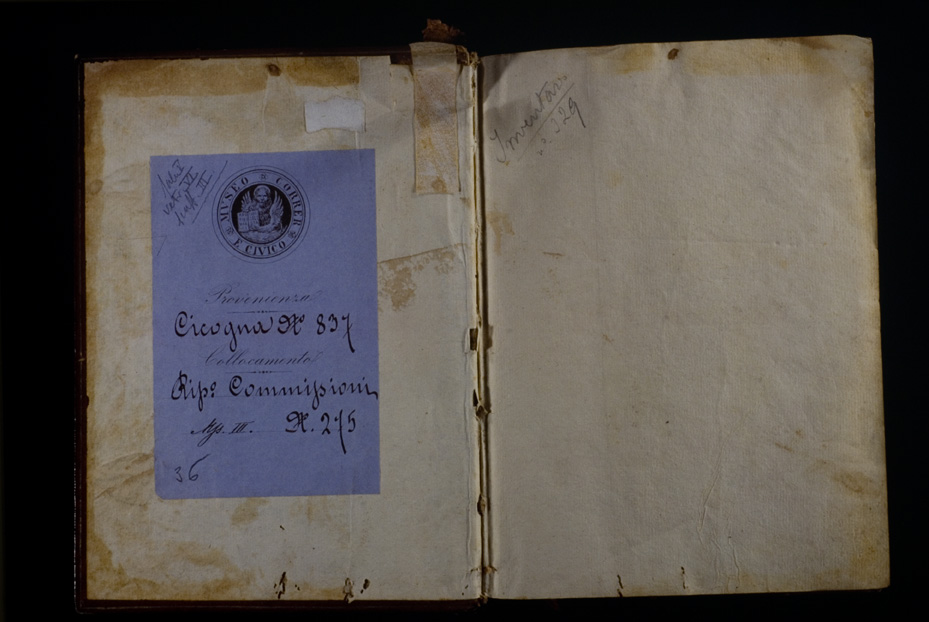 MVSEO CORRER
E CIVICO
Provenienza
Cicogna N.º 837
Collocamento
Ripº Commissioni
Mss. III. N. 275
36
Inventario
nº 329